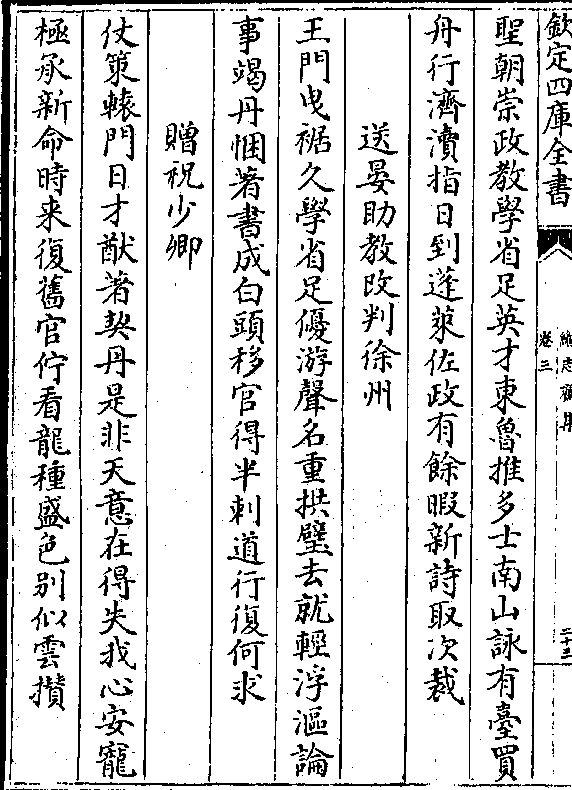 欽定四庫全書
卷三
二十三
聖朝崇政教學省足英才東魯推多士南山詠有臺買
舟行濟瀆指日到蓬萊佐政有餘暇新詩取次裁
送晏助教改判徐州
王門曳裾久學省足優游聲名重拱璧去就輕浮漚論
事竭丹悃著書成白頭移官得半刺道行復何求
贈祝少卿
仗策轅門日才猷著契丹是非天意在得失我心安寵
極承新命時来復舊官佇看龍種盛色别似雲攅